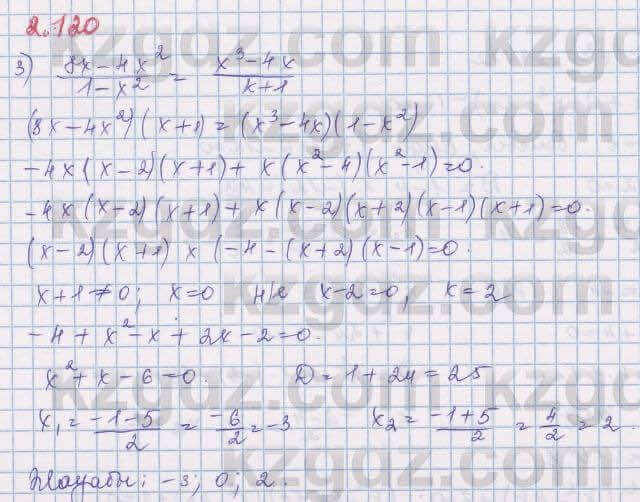 2.120
3) (8x-4x²)/(1-x²) = (x³-4x)/(x+1)
(8x-4x²)(x+1) = (x³-4x)(1-x²)
-4x(x-2)(x+1) + x(x²-4)(x²-1)=0.
-4x(x-2)(x+1) + x(x-2)(x+2)(x-1)(x+1)=0.
(x-2)(x+1) x (-4-(x+2)(x-1)=0.
x+1≠0; x=0 н/е x-2=0, x=2
-4+x²-x+2x-2=0.
x²+x-6=0. D=1+24=25
x₁=(-1-5)/2=-6/2=-3 x₂=(-1+5)/2=4/2=2.
Жауабы: -3; 0; 2.
kzgdz.com